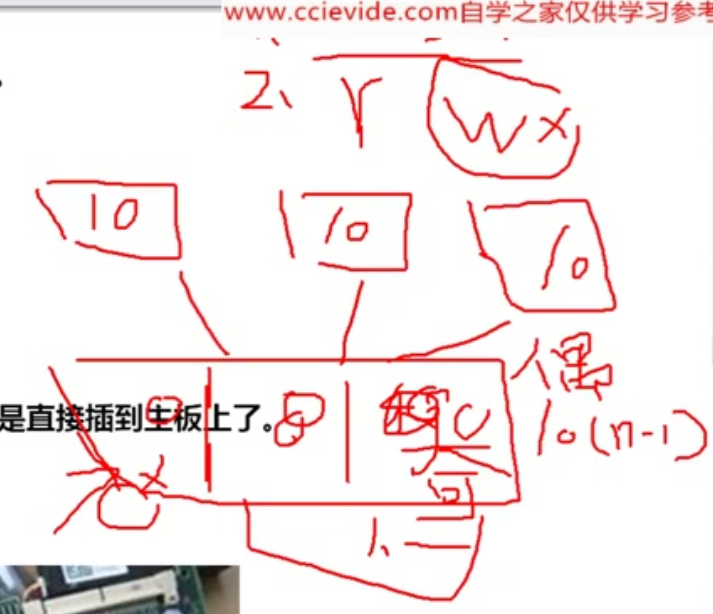 www.ccievide.com自学之家仅供学习参考
2、 r wx
10 10 10
偶
是直接插到主板上了。
10(n-1)
奇
1、